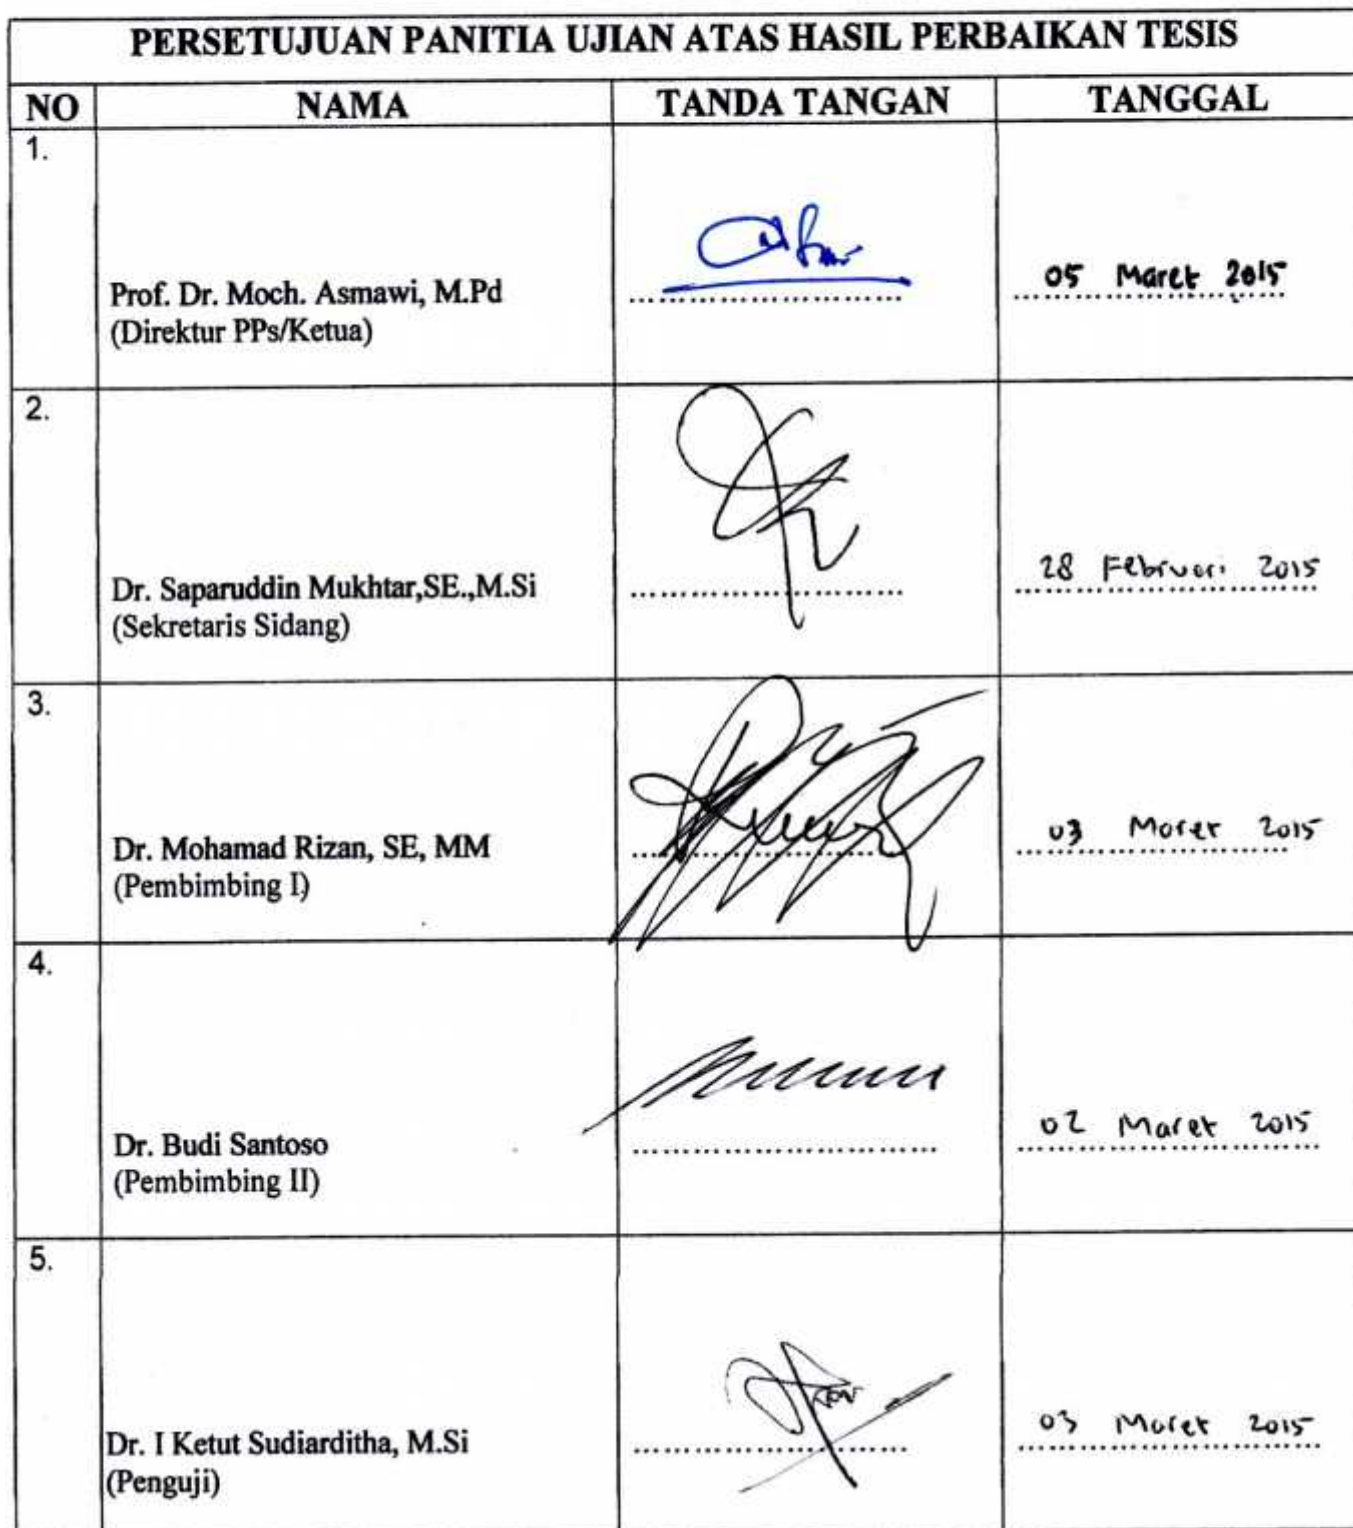 PERSETUJUAN PANITIA UJIAN ATAS HASIL PERBAIKAN TESIS
NO NAMA TANDA TANGAN TANGGAL
1.
Prof. Dr. Moch. Asmawi, M.Pd
(Direktur PPs/Ketua)
05 Maret 2015
2.
Dr. Saparuddin Mukhtar,SE.,M.Si
(Sekretaris Sidang)
28 Februari 2015
3.
Dr. Mohamad Rizan, SE, MM
(Pembimbing I)
03 Maret 2015
4.
Dr. Budi Santoso
(Pembimbing II)
02 Maret 2015
5.
Dr. I Ketut Sudiarditha, M.Si
(Penguji)
03 Maret 2015